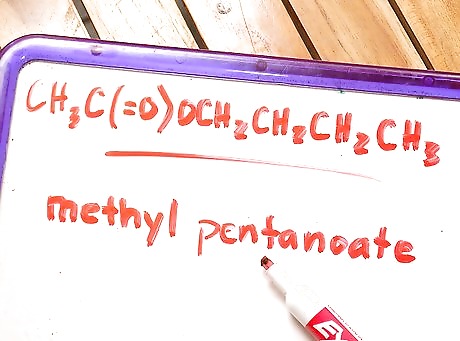 CH₃C(=O)OCH₂CH₂CH₂CH₃
methyl pentanoate
EX